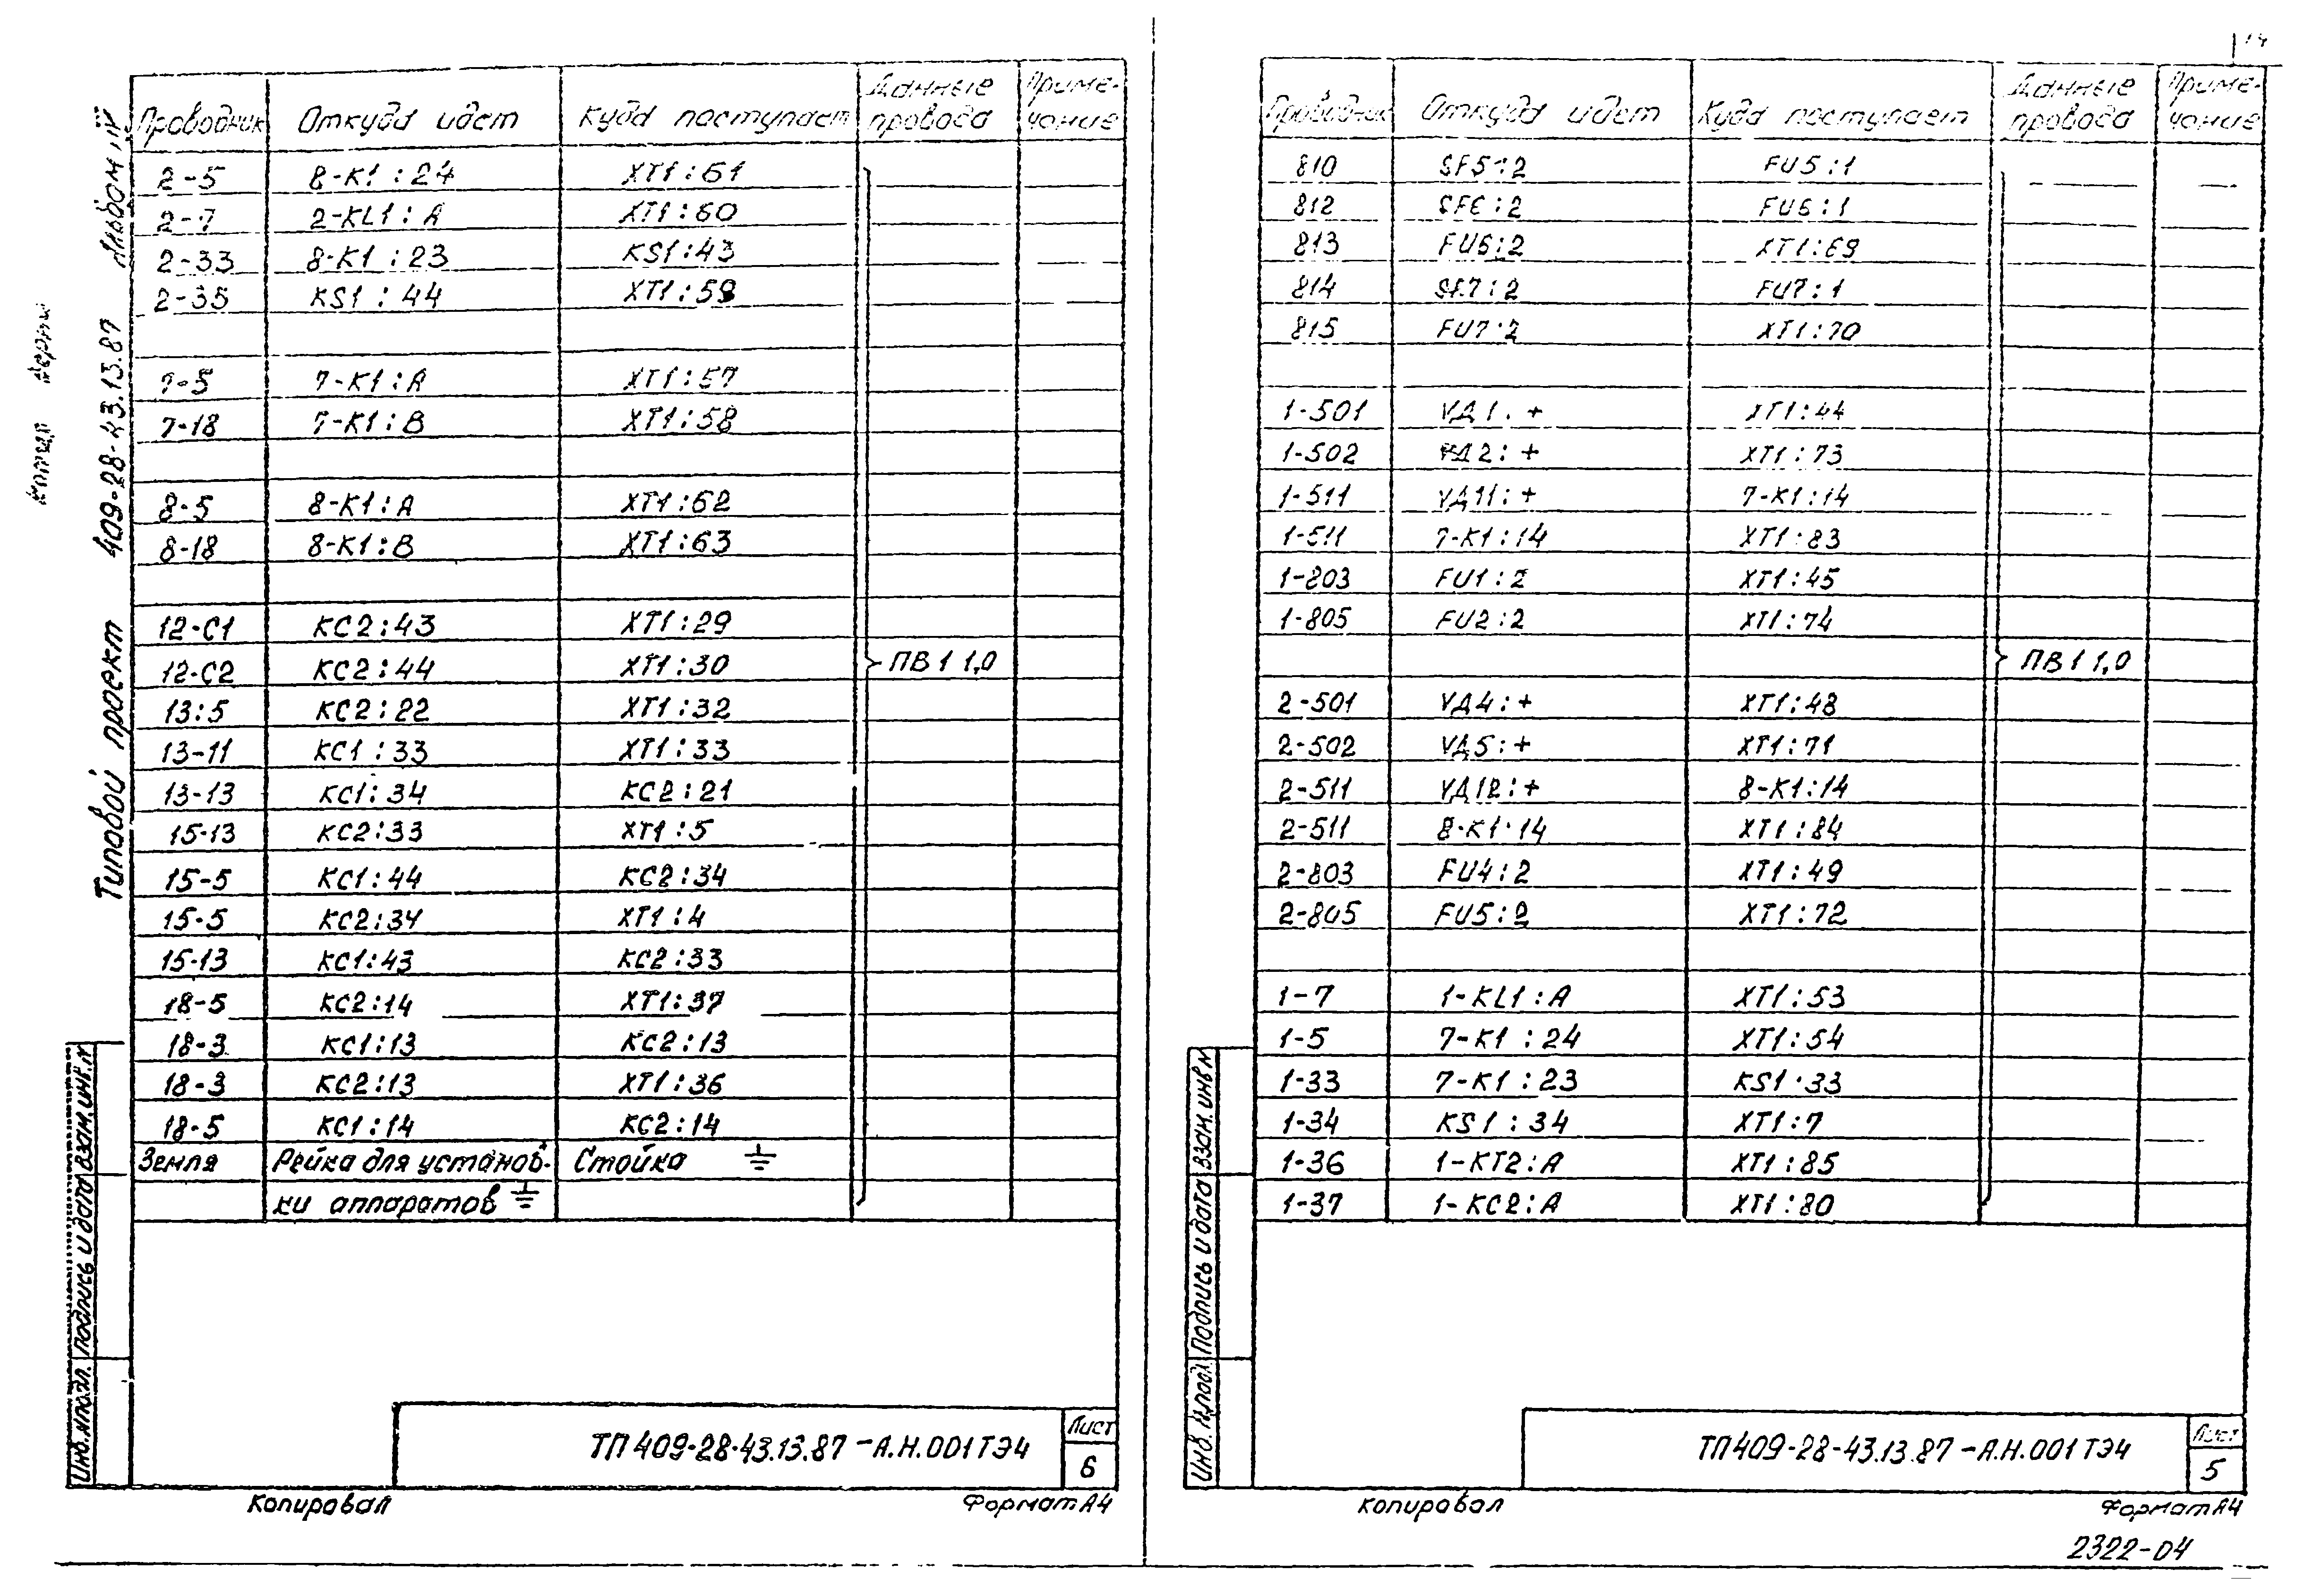 Альбом IV
Типовой проект 409-28-43.13.87
Проводник Откуда идет Куда поступает Данные провода Примечание
2-5 8-К1:24 ХТ1:61
2-7 2-KL1:А ХТ1:60
2-33 8-К1:23 KS1:43
2-35 KS1:44 ХТ1:59
7-5 7-К1:А ХТ1:57
7-18 7-К1:В ХТ1:58
8-5 8-К1:А ХТ1:62
8-18 8-К1:В ХТ1:63
12-С1 КС2:43 ХТ1:29
12-С2 КС2:44 ХТ1:30 ПВ1 1,0
13:5 КС2:22 ХТ1:32
13-11 КС1:33 ХТ1:33
13-13 КС1:34 КС2:21
15-13 КС2:33 ХТ1:5
15-5 КС1:44 КС2:34
15-5 КС2:34 ХТ1:4
15-13 КС1:43 КС2:33
18-5 КС2:14 ХТ1:37
18-3 КС1:13 КС2:13
18-3 КС2:13 ХТ1:36
18-5 КС1:14 КС2:14
Земля Рейка для установ- Стойка ⏚
ки аппаратов ⏚
Инв.№подл. Подпись и дата Взам.инв.№
ТП 409-28-43.13.87-А.Н.001ТЭ4
Лист
6
Копировал Формат А4
14
Проводник Откуда идет Куда поступает Данные провода Примечание
810 SF5:2 FU5:1
812 SF6:2 FU6:1
813 FU6:2 ХТ1:69
814 SF7:2 FU7:1
815 FU7:2 ХТ1:70
1-501 VД1:+ ХТ1:44
1-502 VД2:+ ХТ1:73
1-511 VД11:+ 7-К1:14
1-511 7-К1:14 ХТ1:83
1-803 FU1:2 ХТ1:45
1-805 FU2:2 ХТ1:74
ПВ1 1,0
2-501 VД4:+ ХТ1:48
2-502 VД5:+ ХТ1:71
2-511 VД12:+ 8-К1:14
2-511 8-К1:14 ХТ1:84
2-803 FU4:2 ХТ1:49
2-805 FU5:2 ХТ1:72
1-7 1-KL1:А ХТ1:53
1-5 7-К1:24 ХТ1:54
1-33 7-К1:23 KS1:33
1-34 KS1:34 ХТ1:7
1-36 1-КТ2:А ХТ1:85
1-37 1-КС2:А ХТ1:80
Инв.№подл. Подпись и дата Взам.инв№
ТП409-28-43.13.87-А.Н.001ТЭ4
Лист
5
Копировал Формат А4
2322-04